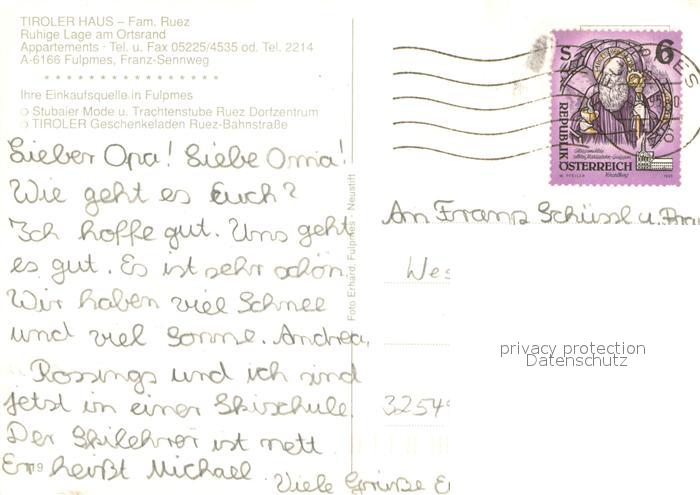 TIROLER HAUS – Fam. Ruez
Ruhige Lage am Ortsrand
Appartements · Tel. u. Fax 05225/4535 od. Tel. 2214
A-6166 Fulpmes, Franz-Sennweg
* * * * * * * * * * * * * * * *
Ihre Einkaufsquelle in Fulpmes
○ Stubaier Mode u. Trachtenstube Ruez Dorfzentrum
○ TIROLER Geschenkeladen Ruez-Bahnstraße
Lieber Opa! Liebe Oma!
Wie geht es Euch?
Ich hoffe gut. Uns geht
es gut. Es ist sehr schön.
Wir haben viel Schnee
und viel Sonne. Andrea,
Rossings und ich sind
jetzt in einer Skischule.
Der Skilehrer ist nett.
Er heißt Michael. Viele Grüße
Foto Erhard, Fulpmes - Neustift
6
REPUBLIK ÖSTERREICH
An Franz Schüssl u.
Wes
3254
privacy protection
Datenschutz